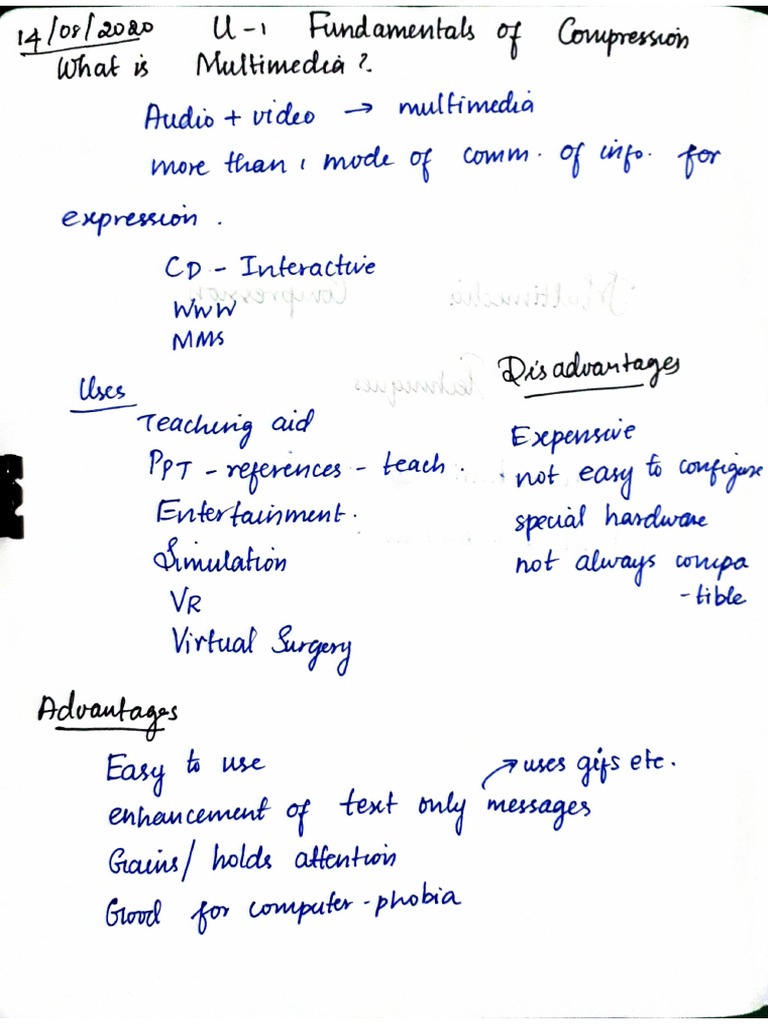 14/08/2020 U-1 Fundamentals of Compression
What is Multimedia?
Audio + video → multimedia
more than 1 mode of comm. of info. for
expression.
CD - Interactive
WWW
MMS
Uses
Teaching aid
PPT - references - teach.
Entertainment.
Simulation
VR
Virtual Surgery
Disadvantages
Expensive
not easy to configure
special hardware
not always compa
-tible
Advantages
Easy to use
→ uses gifs etc.
enhancement of text only messages
Grains/ holds attention
Good for computer-phobia